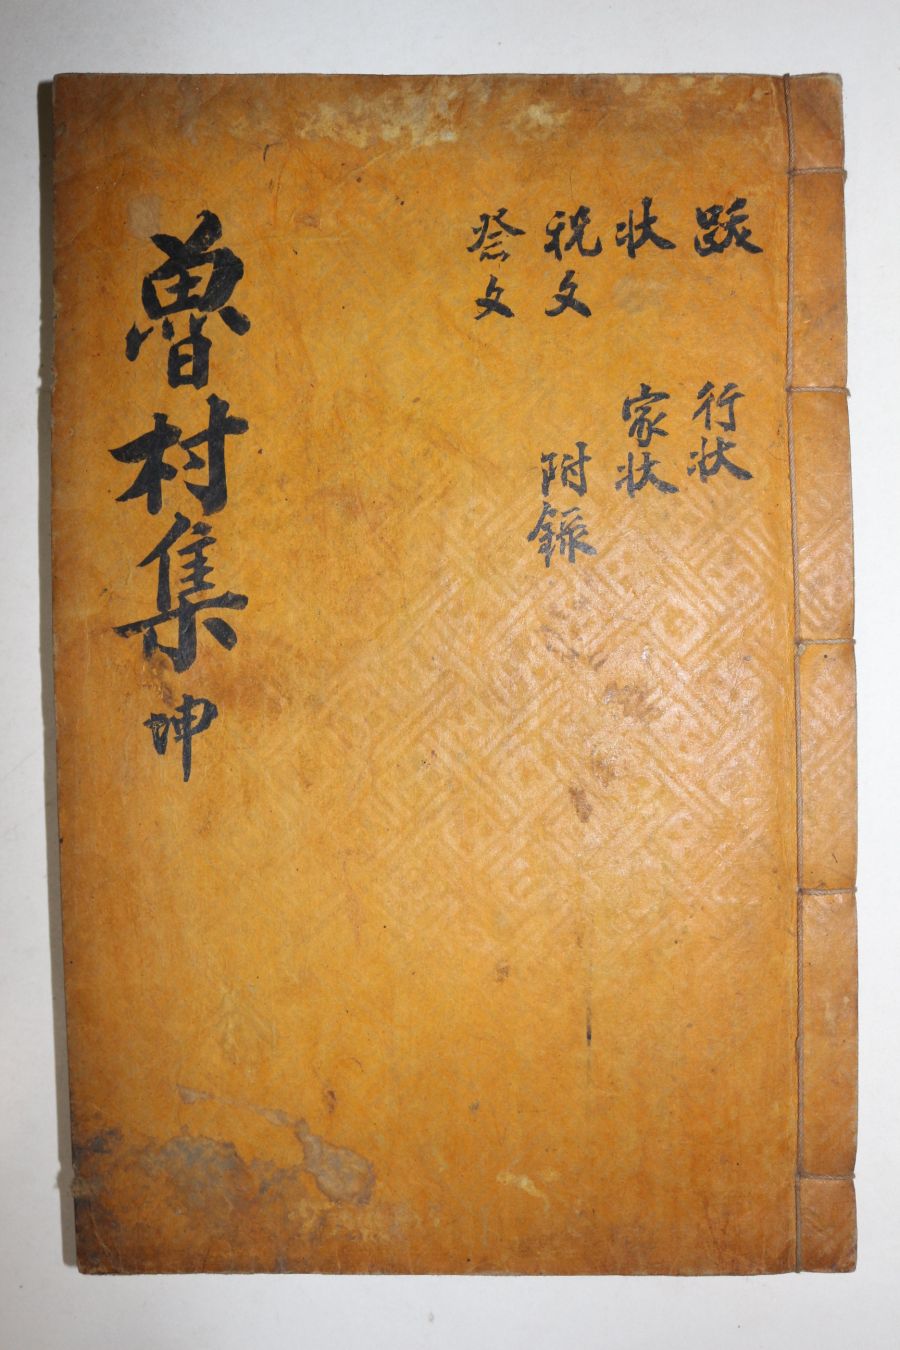 跋 行狀
狀 家狀
祝文 附錄
祭文
魯村集 坤